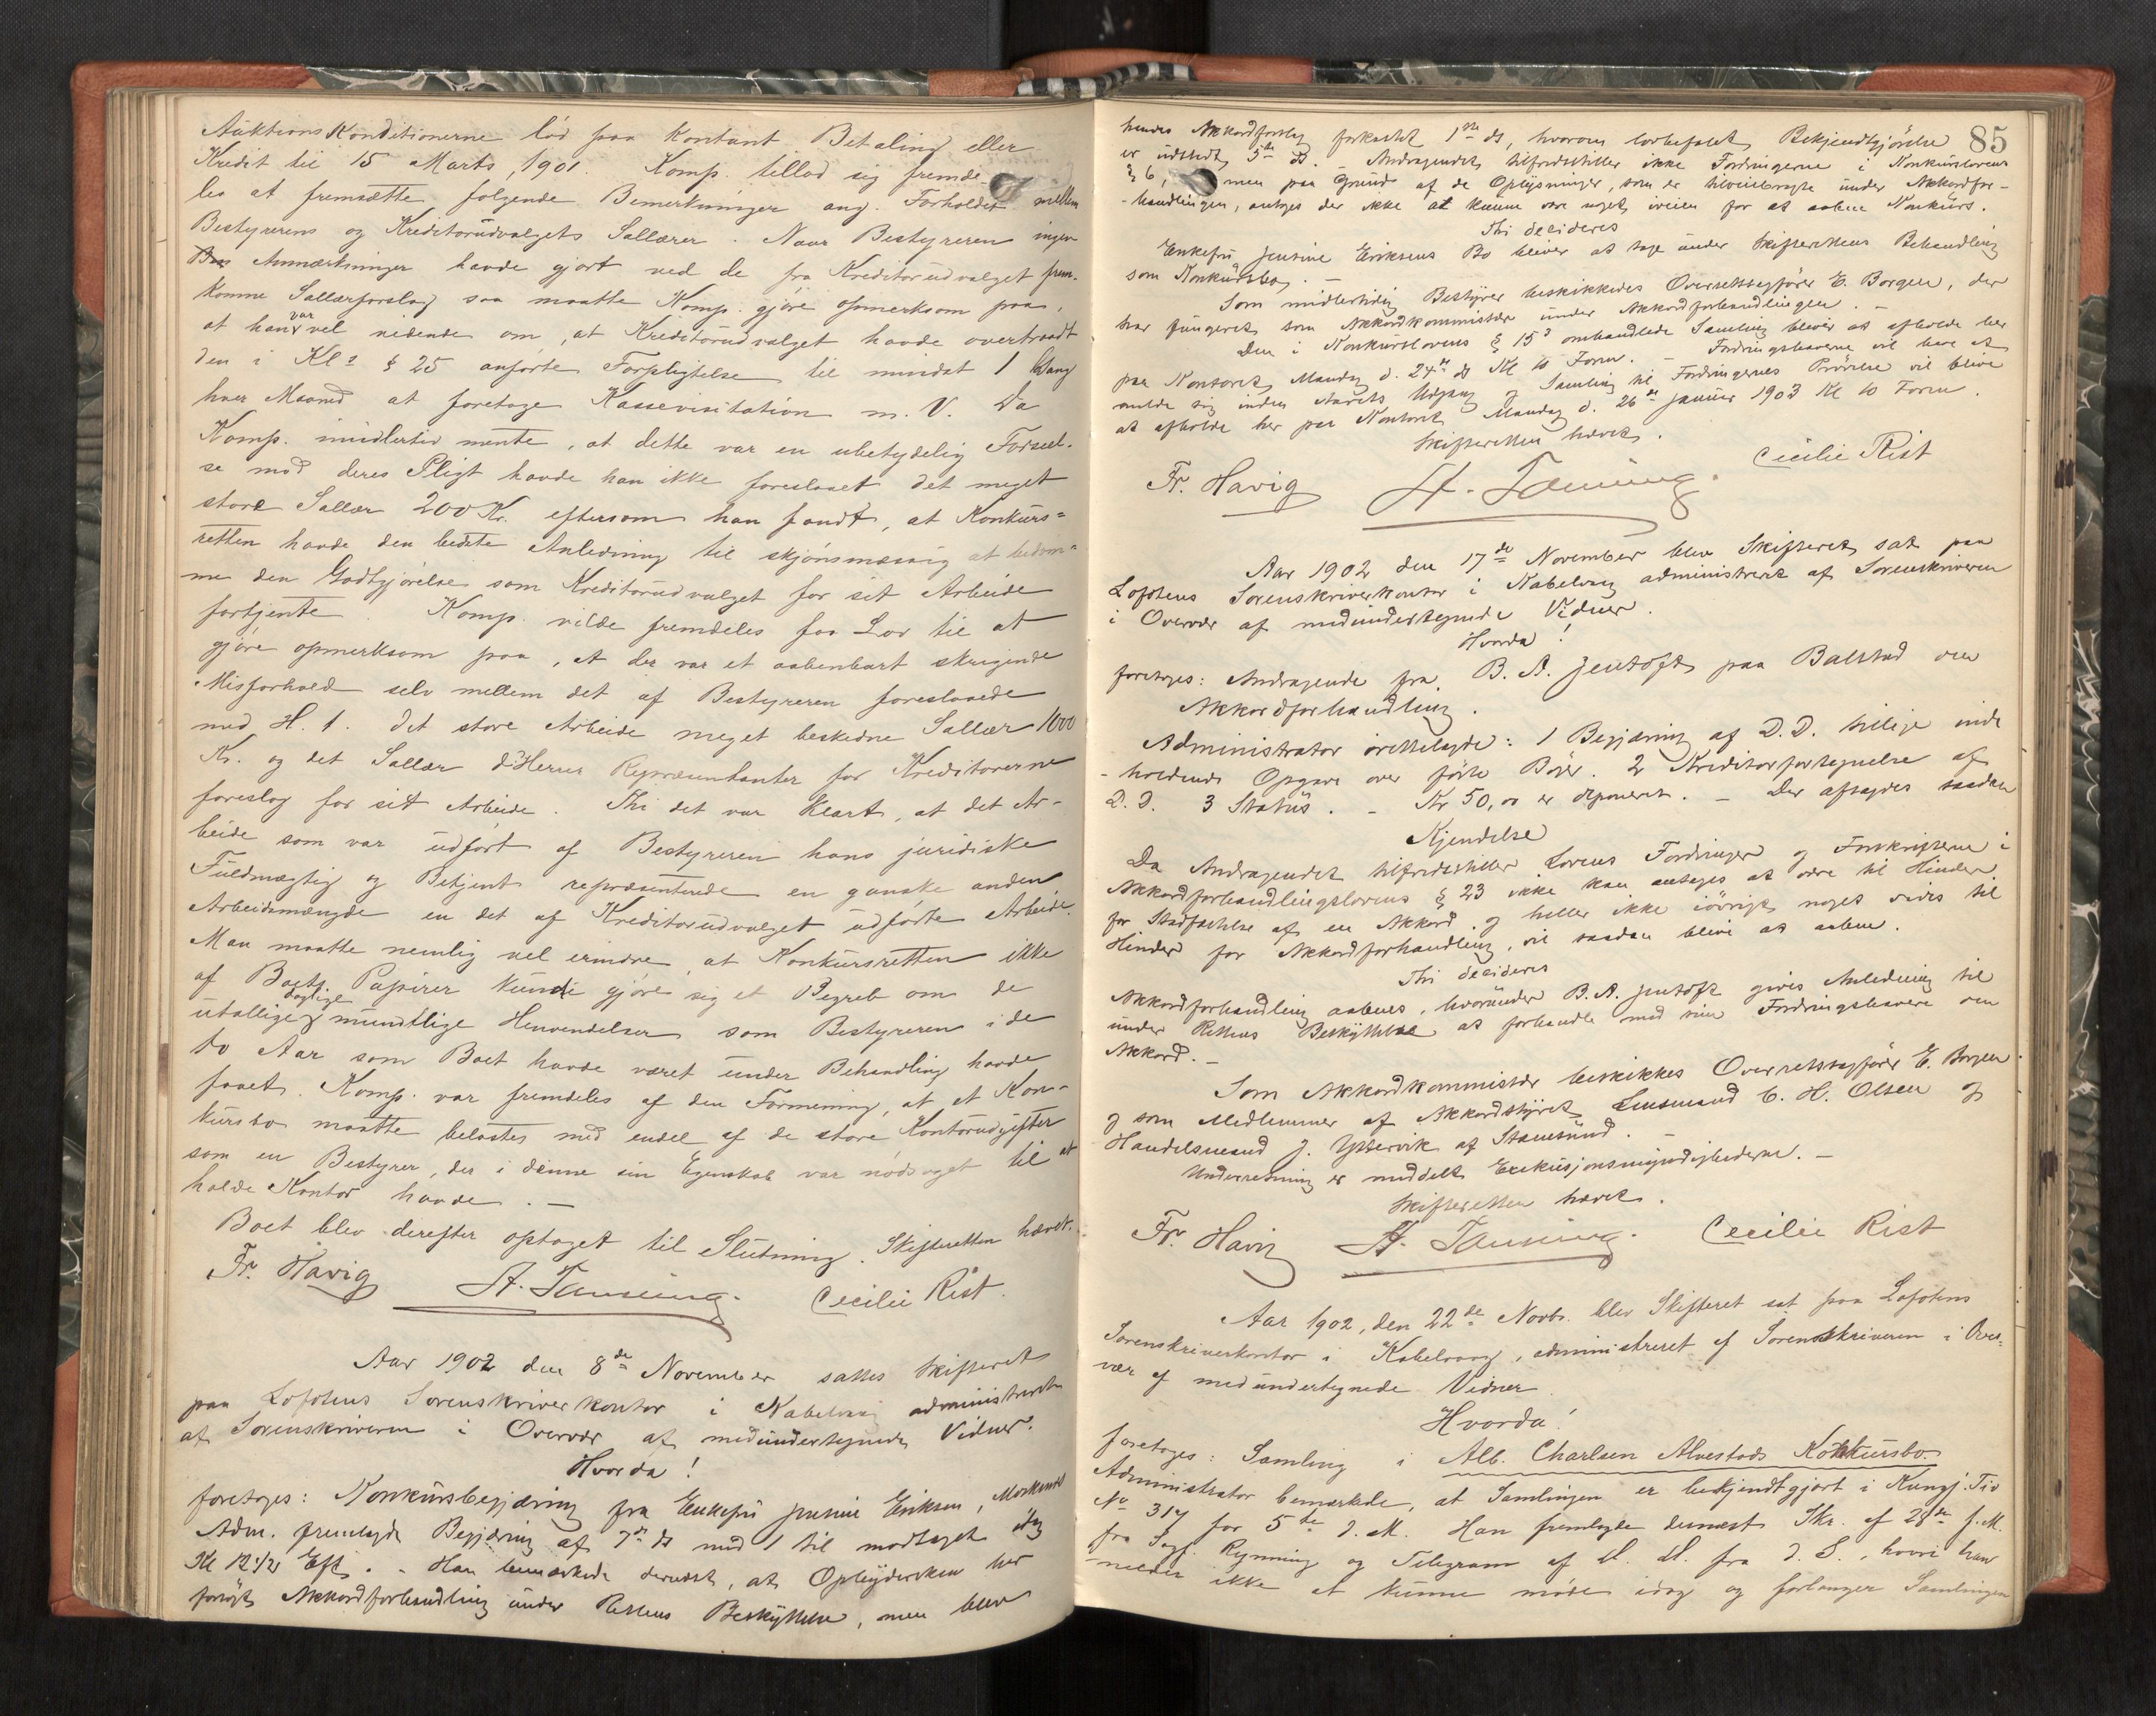 Auktions Konditionerne lød paa Kontant Betaling eller
Kredit til 15 Marts, 1901. Komp. tillod sig fremde-
les at fremsætte følgende Bemerkninger ang. Forholdet mellem
Bestyrerens og Kreditorudvalgets Sallærer. Naar Bestyreren ingen
Anmærkninger havde gjort ved de fra Kreditorudvalget frem-
komne Sallærforslag saa maatte Komp. gjøre opmerksom paa,
at han var vel vidende om, at Kreditorudvalget havde overtraadt
den i Kl § 25 anførte Forpligtelse til mindst 1 Gang
hver Maaned at foretage Kassevisitation m. V. Da
Komp. imidlertid mente, at dette var en ubetydelig Forseel-
se mod deres Pligt havde han ikke foreslaaet det meget
store Sallær 200 Kr. eftersom han fandt, at Konkurs=
retten havde den bedste Anledning til skjønsmæssig at bedøm=
me den Godtgjørelse som Kreditorudvalget for sit Arbeide
fortjente. Komp. vilde fremdeles faa Lov til at
gjøre opmerksom paa, at der var et aabenbart skrigende
Misforhold selv mellem det af Bestyreren foreslaaede
med H. t. det store Arbeide meget beskedne Sallær 1000
Kr. og det Sallær d'Herrer Repræsentanter for Kreditorerne
foreslog for sit Arbeide. Thi det var klart, at det Ar-
beide som var udført af Bestyreren hans juridiske
Fuldmægtig og Betjent repræsenterede en ganske anden
Arbeidsmængde en det af Kreditorudvalget udførte Arbeide.
Man maatte nemlig vel erindre, at Konkursretten ikke
af Boets Papirer kunde gjøre sig et Begreb om de
utallige daglige mundtlige Henvendelser som Bestyreren i de
to Aar som Boet havde været under Behandling havde
faaet. Komp. var fremdeles af den Formening, at et Kon-
kursbo maatte belastes med endel af de store Kontorudgifter
som en Bestyrer, der i denne sin Egenskab var nødsaget til at
holde Kontor havde. —
Boet blev derefter optaget til Slutning. Skifteretten hævet.
Fr. Havig A. Tanning. Cecilie Rist.
Aar 1902 den 8de November sattes Skifteret
paa Lofotens Sorenskriverkontor i Kabelvaag administreret
af Sorenskriveren i Overvær af medundertegnede Vidner.
Hvorda!
foretoges: Konkursbegjæring fra Enkefru Jensine Eriksen,
Adm. fremlagde Begjæring af 7de ds med 1 til modtaget idag
Kl 12 1/2 Eft. - Han bemærkede dernæst, at Opbydersken har
forsøgt Akkordforhandling under Rettens Beskyttelse, men blev
85
hendes Akkordforslag forkastet 1ste ds, hvorom lovbefalet Bekjendtgjørelse
er udstedt 5te ds. - Andragendet tilfredsstiller ikke Fordringerne i Konkurslovens
§ 6, men paa Grund af de Oplysninger, som er tilveiebragte under Akkordfor-
-handlingen, antages der ikke at kunne være noget iveien for at aabne Konkurs.
Thi decideres
Enkefru Jensine Eriksens Bo bliver at tage under Skifterettens Behandling
som Konkursbo. —
Som midlertidig Bestyrer beskikkedes Overretssagfører E. Borgen, der
har fungeret som Akkordkommissær under Akkordforhandlingen. —
Den i Konkurslovens § 15 omhandlede Samling bliver at afholde her
paa Kontoret Mandag d. 24de ds Kl 10 Form. - Fordringshaverne vil have at
melde sig inden Aarets Udgang og Samling til Fordringernes Prøvelse vil blive
at afholde her paa Kontoret Mandag d. 26de Januar 1903 Kl 10 Form.
Skifteretten hævet.
Fr. Havig A. Tanning. Cecilie Rist
Aar 1902 den 17de November blev Skifteret sat paa
Lofotens Sorenskriverkontor i Kabelvaag administreret af Sorenskriveren
i Overvær af medundertegnede Vidner.
Hvorda!
foretoges: Andragende fra B. A. Jentoft paa Balstad om
Akkordforhandling.
Administrator irettelagde: 1 Begjæring af D.D. tillige inde
-holdende Opgave over førte Bøger. 2 Kreditorfortegnelse af
D.D. 3 Status. - Kr 50,00 er deponeret. - Der afsagdes saadan
Kjendelse
Da Andragendet tilfredsstiller Lovens Fordringer og Forskrifterne i
Akkordforhandlingslovens § 23 ikke kan antages at være til Hinder
for Stadfæstelse af en Akkord og heller ikke iøvrigt noget vides til
Hinder for Akkordforhandling, vil saadan blive at aabne.
Thi decideres
Akkordforhandling aabnes, hvorunder B. A. Jentoft gives Anledning til
under Rettens Beskyttelse at forhandle med sine Fordringshavere om
Akkord. -
Som Akkordkommissær beskikkes Overretssagfører E. Borgen
og som Medlemmer af Akkordstyret Lensmand C. H. Olsen og
Handelsmand J. Yttervik af Stamsund. —
Underretning er meddelt Exekusjonsmyndighederne. —
Skifteretten hævet.
Fr. Havig A. Tanning. Cecilie Rist
Aar 1902, den 22de Novbr. blev Skifteret sat paa Lofotens
Sorenskriverkontor i Kabelvaag, administreret af Sorenskriveren i Over-
vær af medundertegnede Vidner.
Hvorda!
foretoges: Samling i Alb. Charlsen Alvestads Konkursbo.
Administrator bemærkede, at Samlingen er bekjendtgjort i Kungj. Tid
No 317 for 5te d. M. Han fremlagde dernæst Skr. af 28de f. M.
fra Sagf. Rynning og Telegram af d. d. fra d. S., hvori han
melder ikke at kunne møde idag og forlanger Samlingen